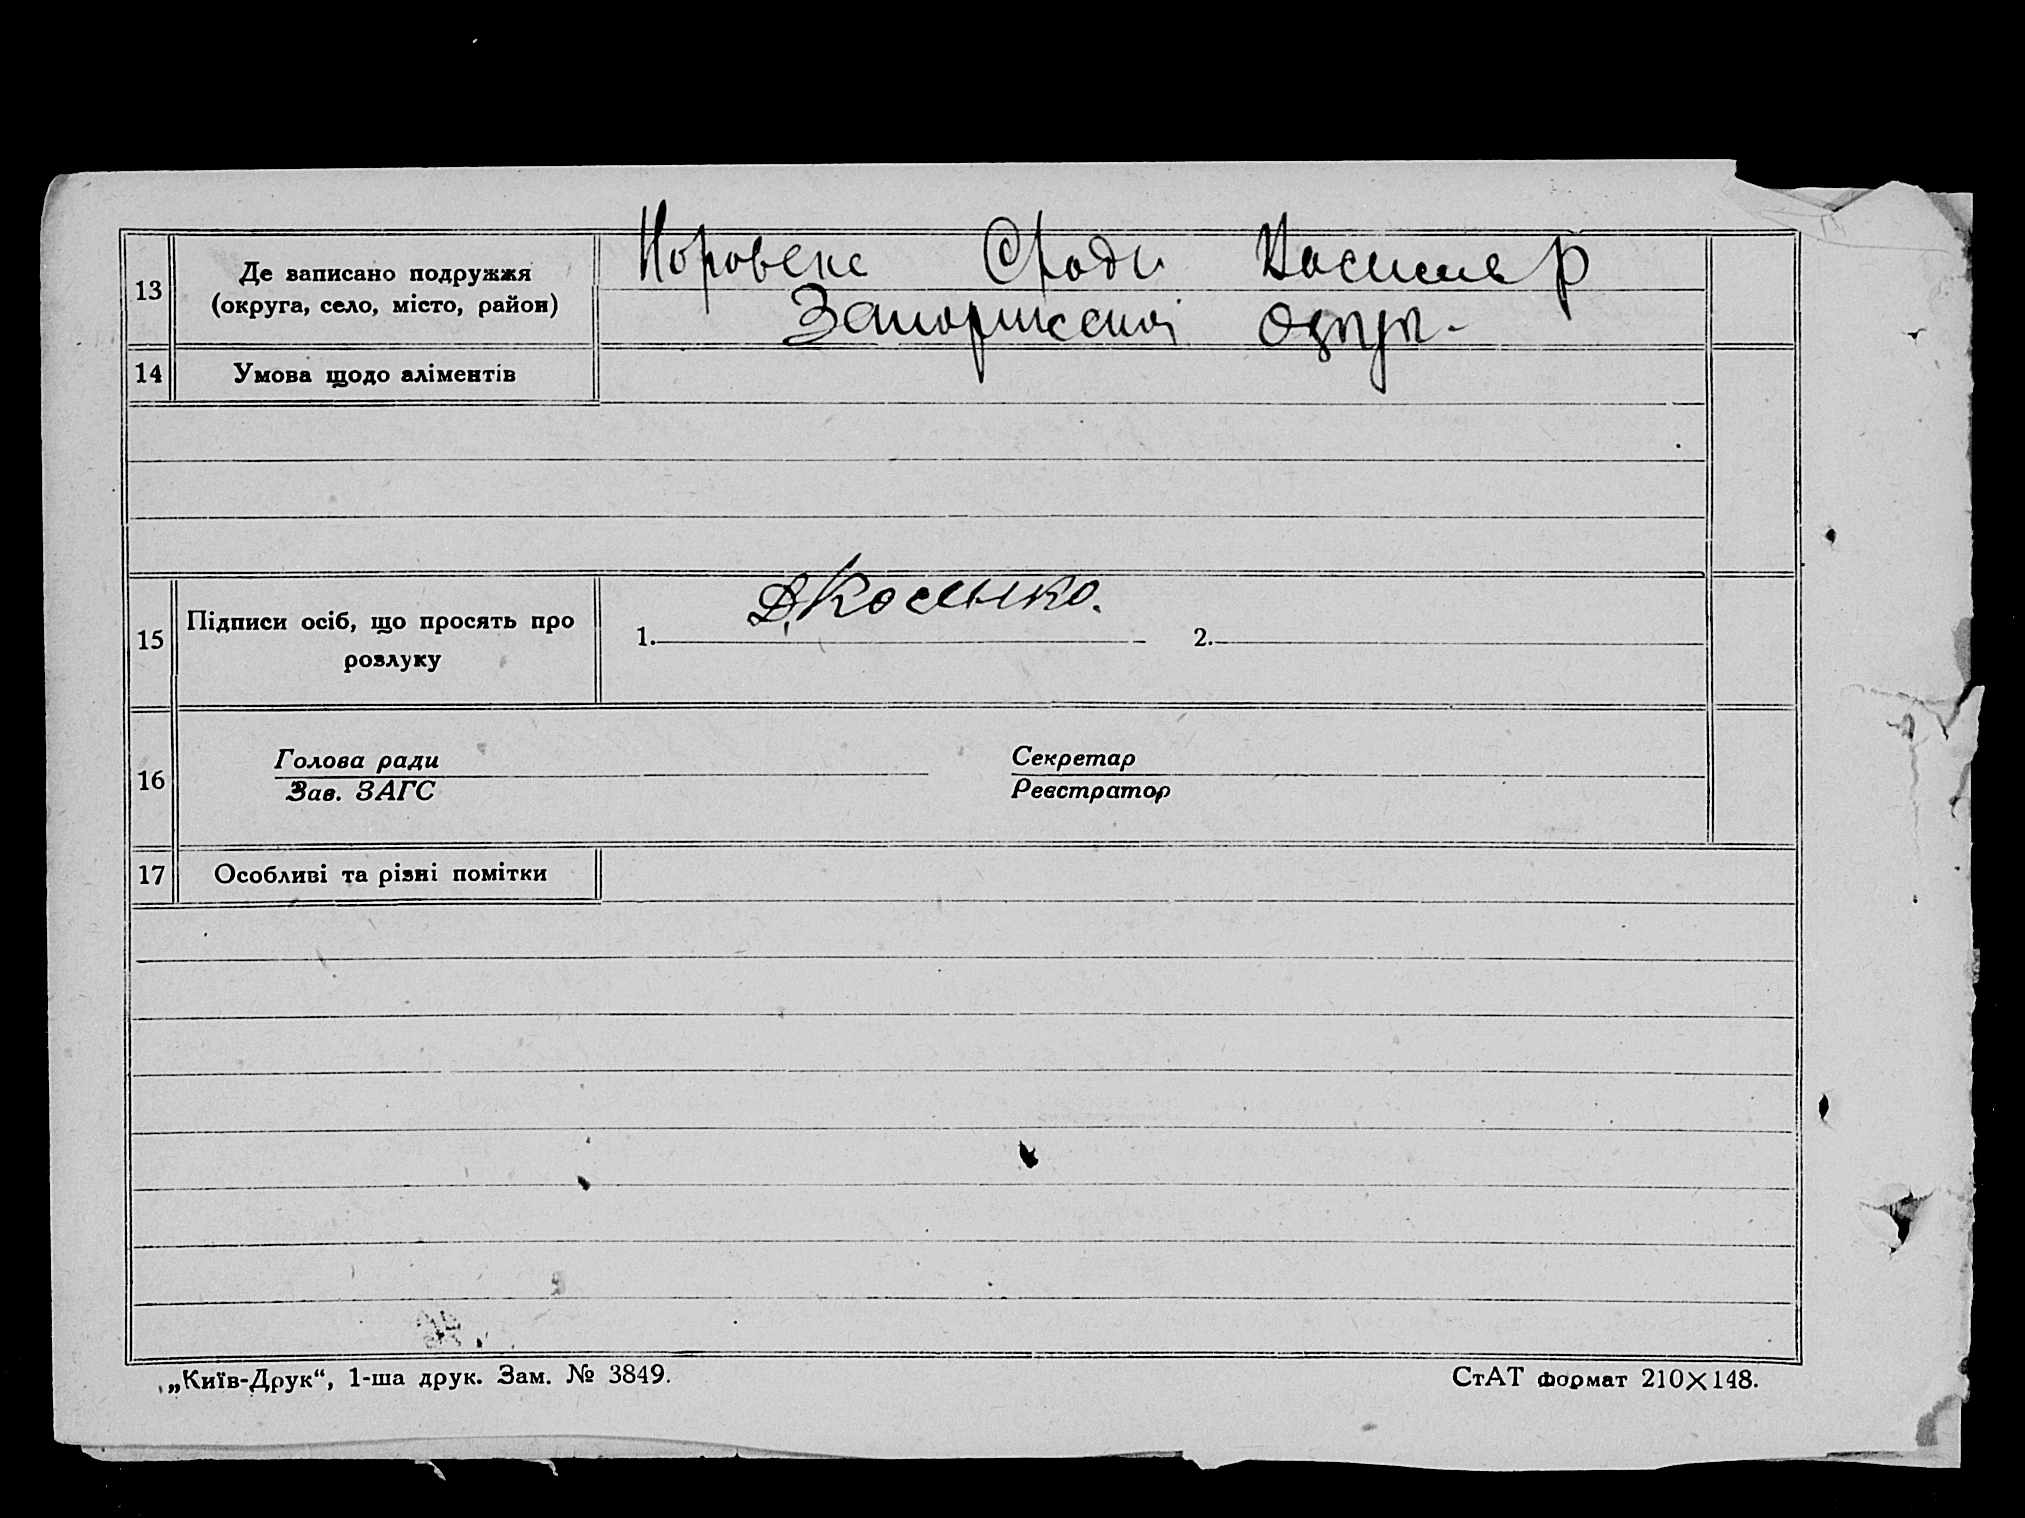 13
Де записано подружжя
(округа, село, місто, район)
С/ради
Запоризської округи
14 Умова щодо аліментів
15
Підписи осіб, що просять про
розлуку
1. Д. Косенко. 2.
16
Голова ради Секретар
Зав. ЗАГС Реєстратор
17 Особливі та різні помітки
„Київ-Друк“, 1-ша друк. Зам. № 3849.
СтАТ формат 210×148.